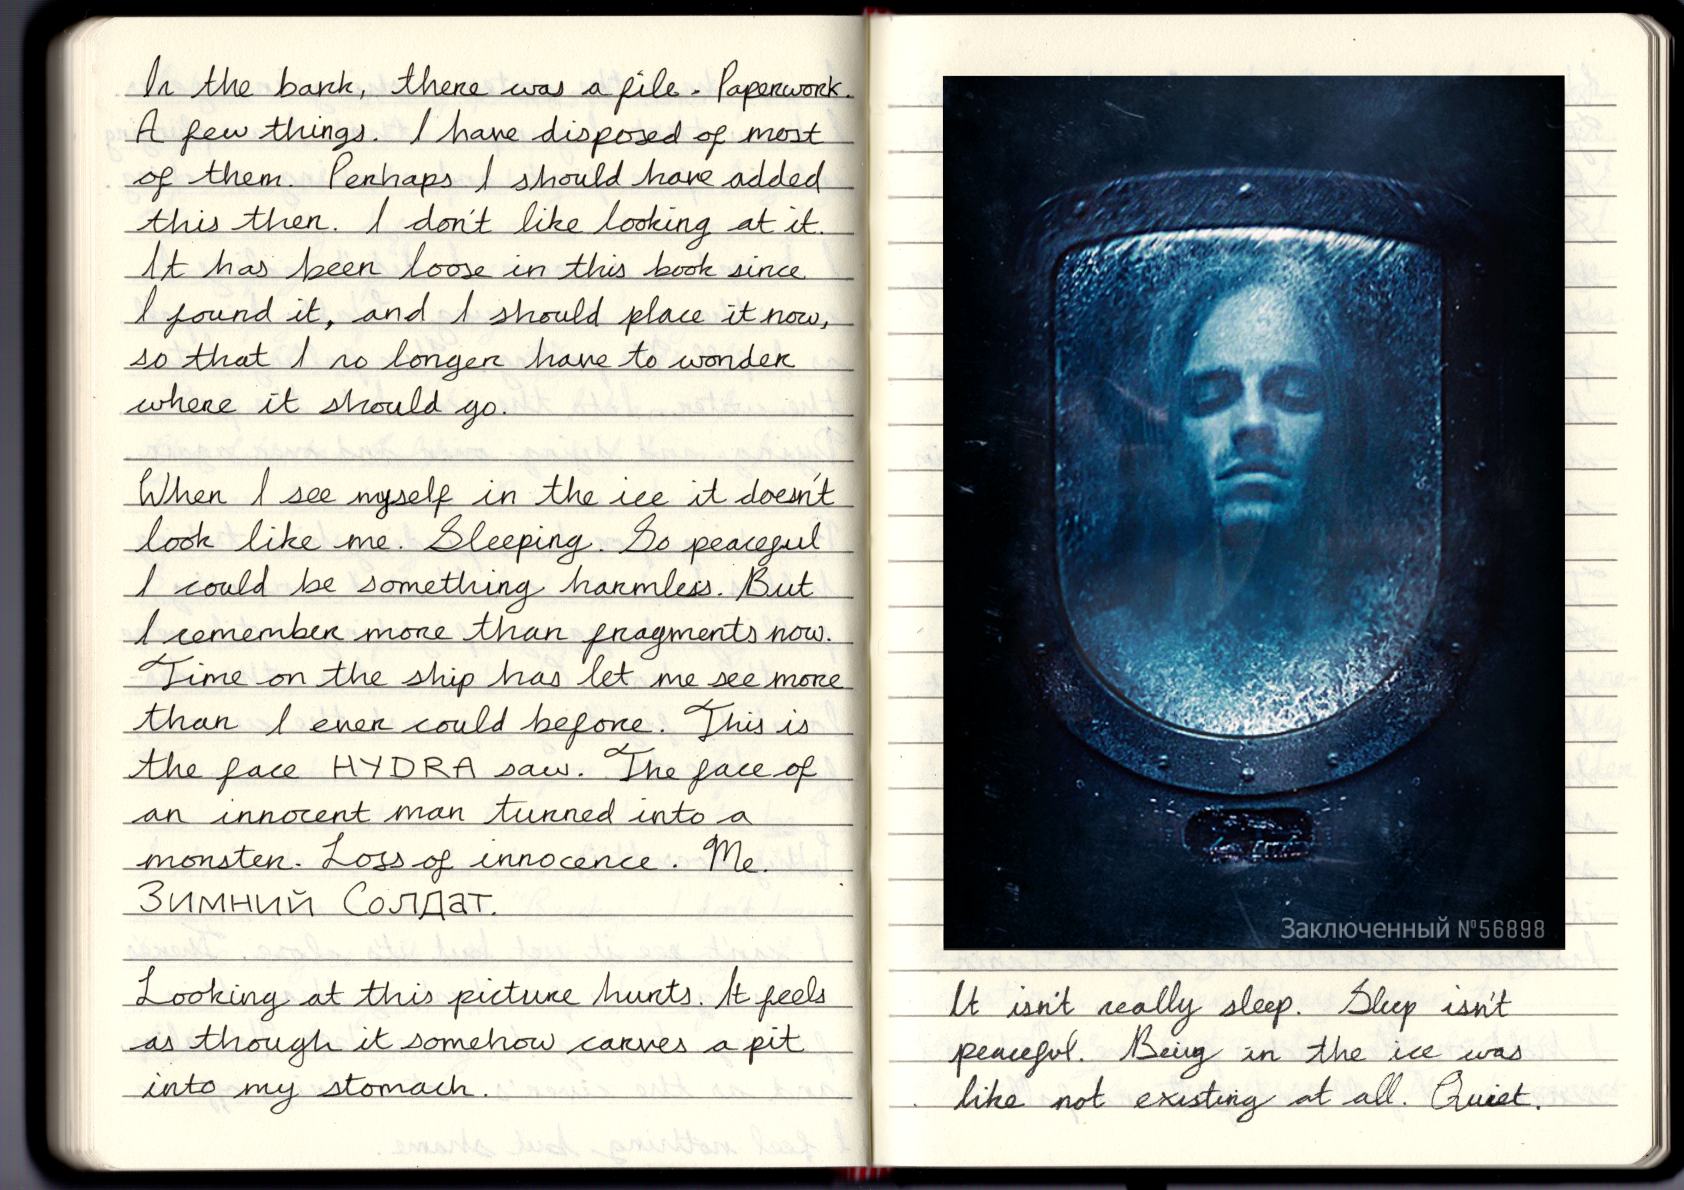 In the bank, there was a file. Paperwork.
A few things. I have disposed of most
of them. Perhaps I should have added
this then. I don't like looking at it.
It has been loose in this book since
I found it, and I should place it now,
so that I no longer have to wonder
where it should go.
When I see myself in the ice it doesn't
look like me. Sleeping. So peaceful
I could be something harmless. But
I remember more than fragments now.
Time on the ship has let me see more
than I ever could before. This is
the face HYDRA saw. The face of
an innocent man turned into a
monster. Loss of innocence. Me.
Зимний Солдат.
Looking at this picture hurts. It feels
as though it somehow carves a pit
into my stomach.
Заключенный №56898
It isn't really sleep. Sleep isn't
peaceful. Being in the ice was
like not existing at all. Quiet.